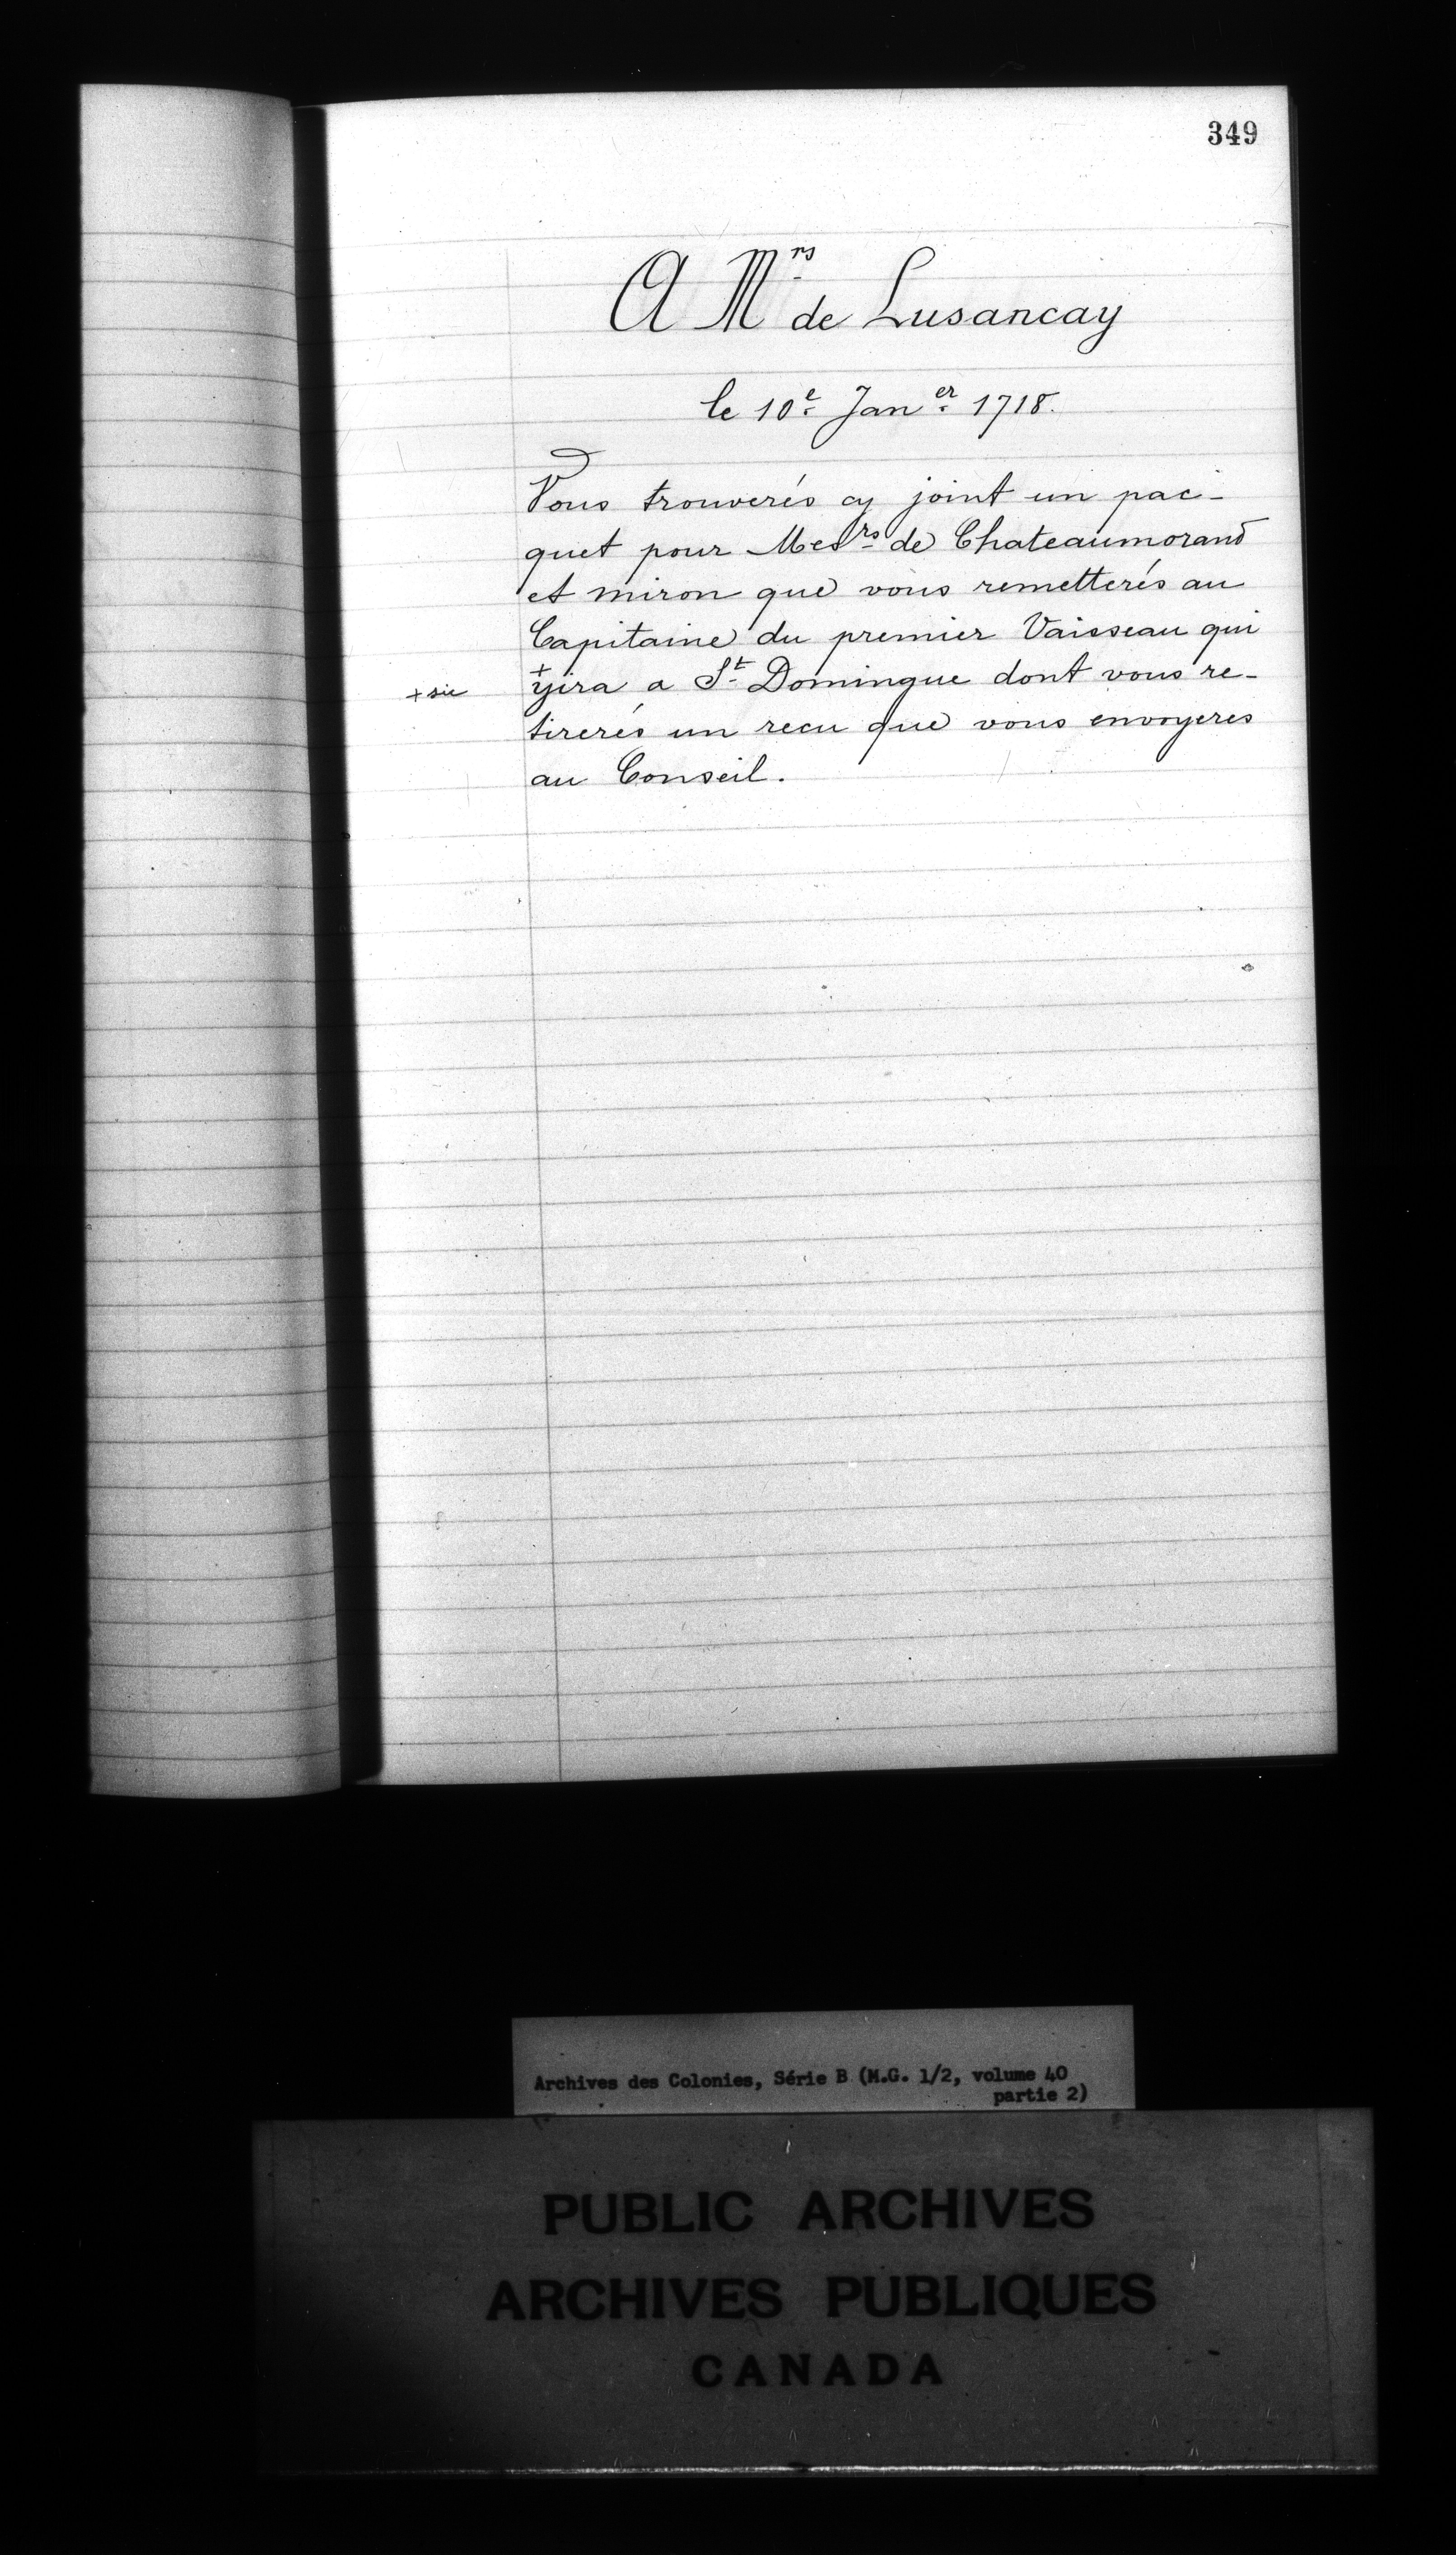 349
A Mrs de Lusancay
le 10e Janer 1718.
Vous trouverés cy joint un pac-
quet pour Messrs de Chateaumorand
et miron que vous remetterés au
Capitaine du premier Vaisseau qui
+ sic
+yira a St Domingue dont vous re-
tirerés un recu que vous envoyeres
au Conseil.
Archives des Colonies, Série B (M.G. 1/2, volume 40
partie 2)
PUBLIC ARCHIVES
ARCHIVES PUBLIQUES
CANADA